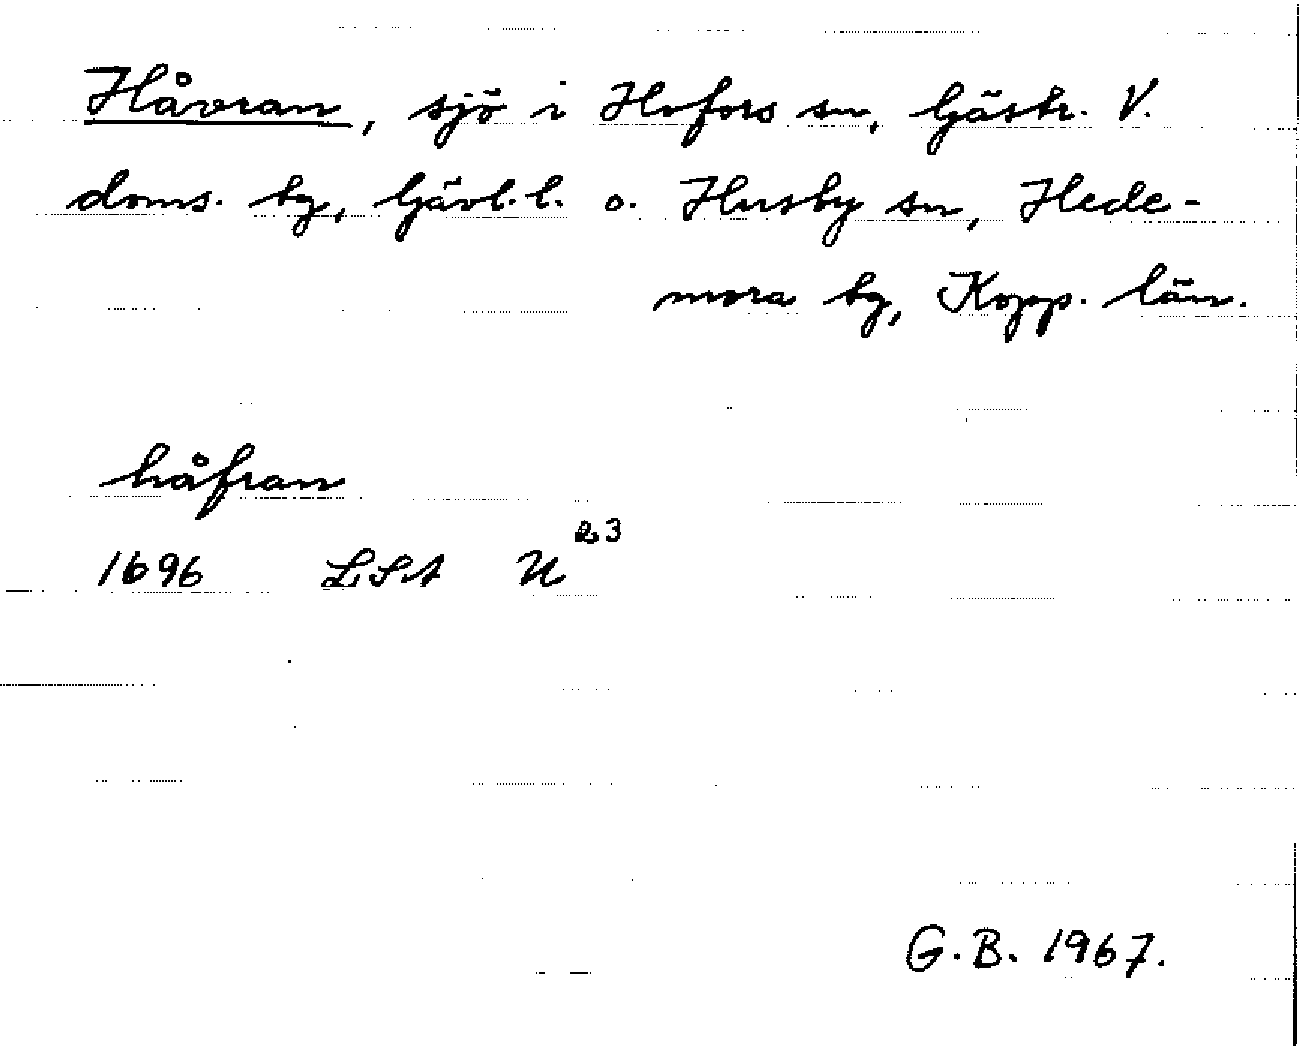 Håvran, sjö i Hofors sn, Gästr. V.
doms. tg, Gävl. l. o. Husby sn, Hede-
mora tg, Kopp. län.
håfran
1696 LSA U 23
G.B. 1967.